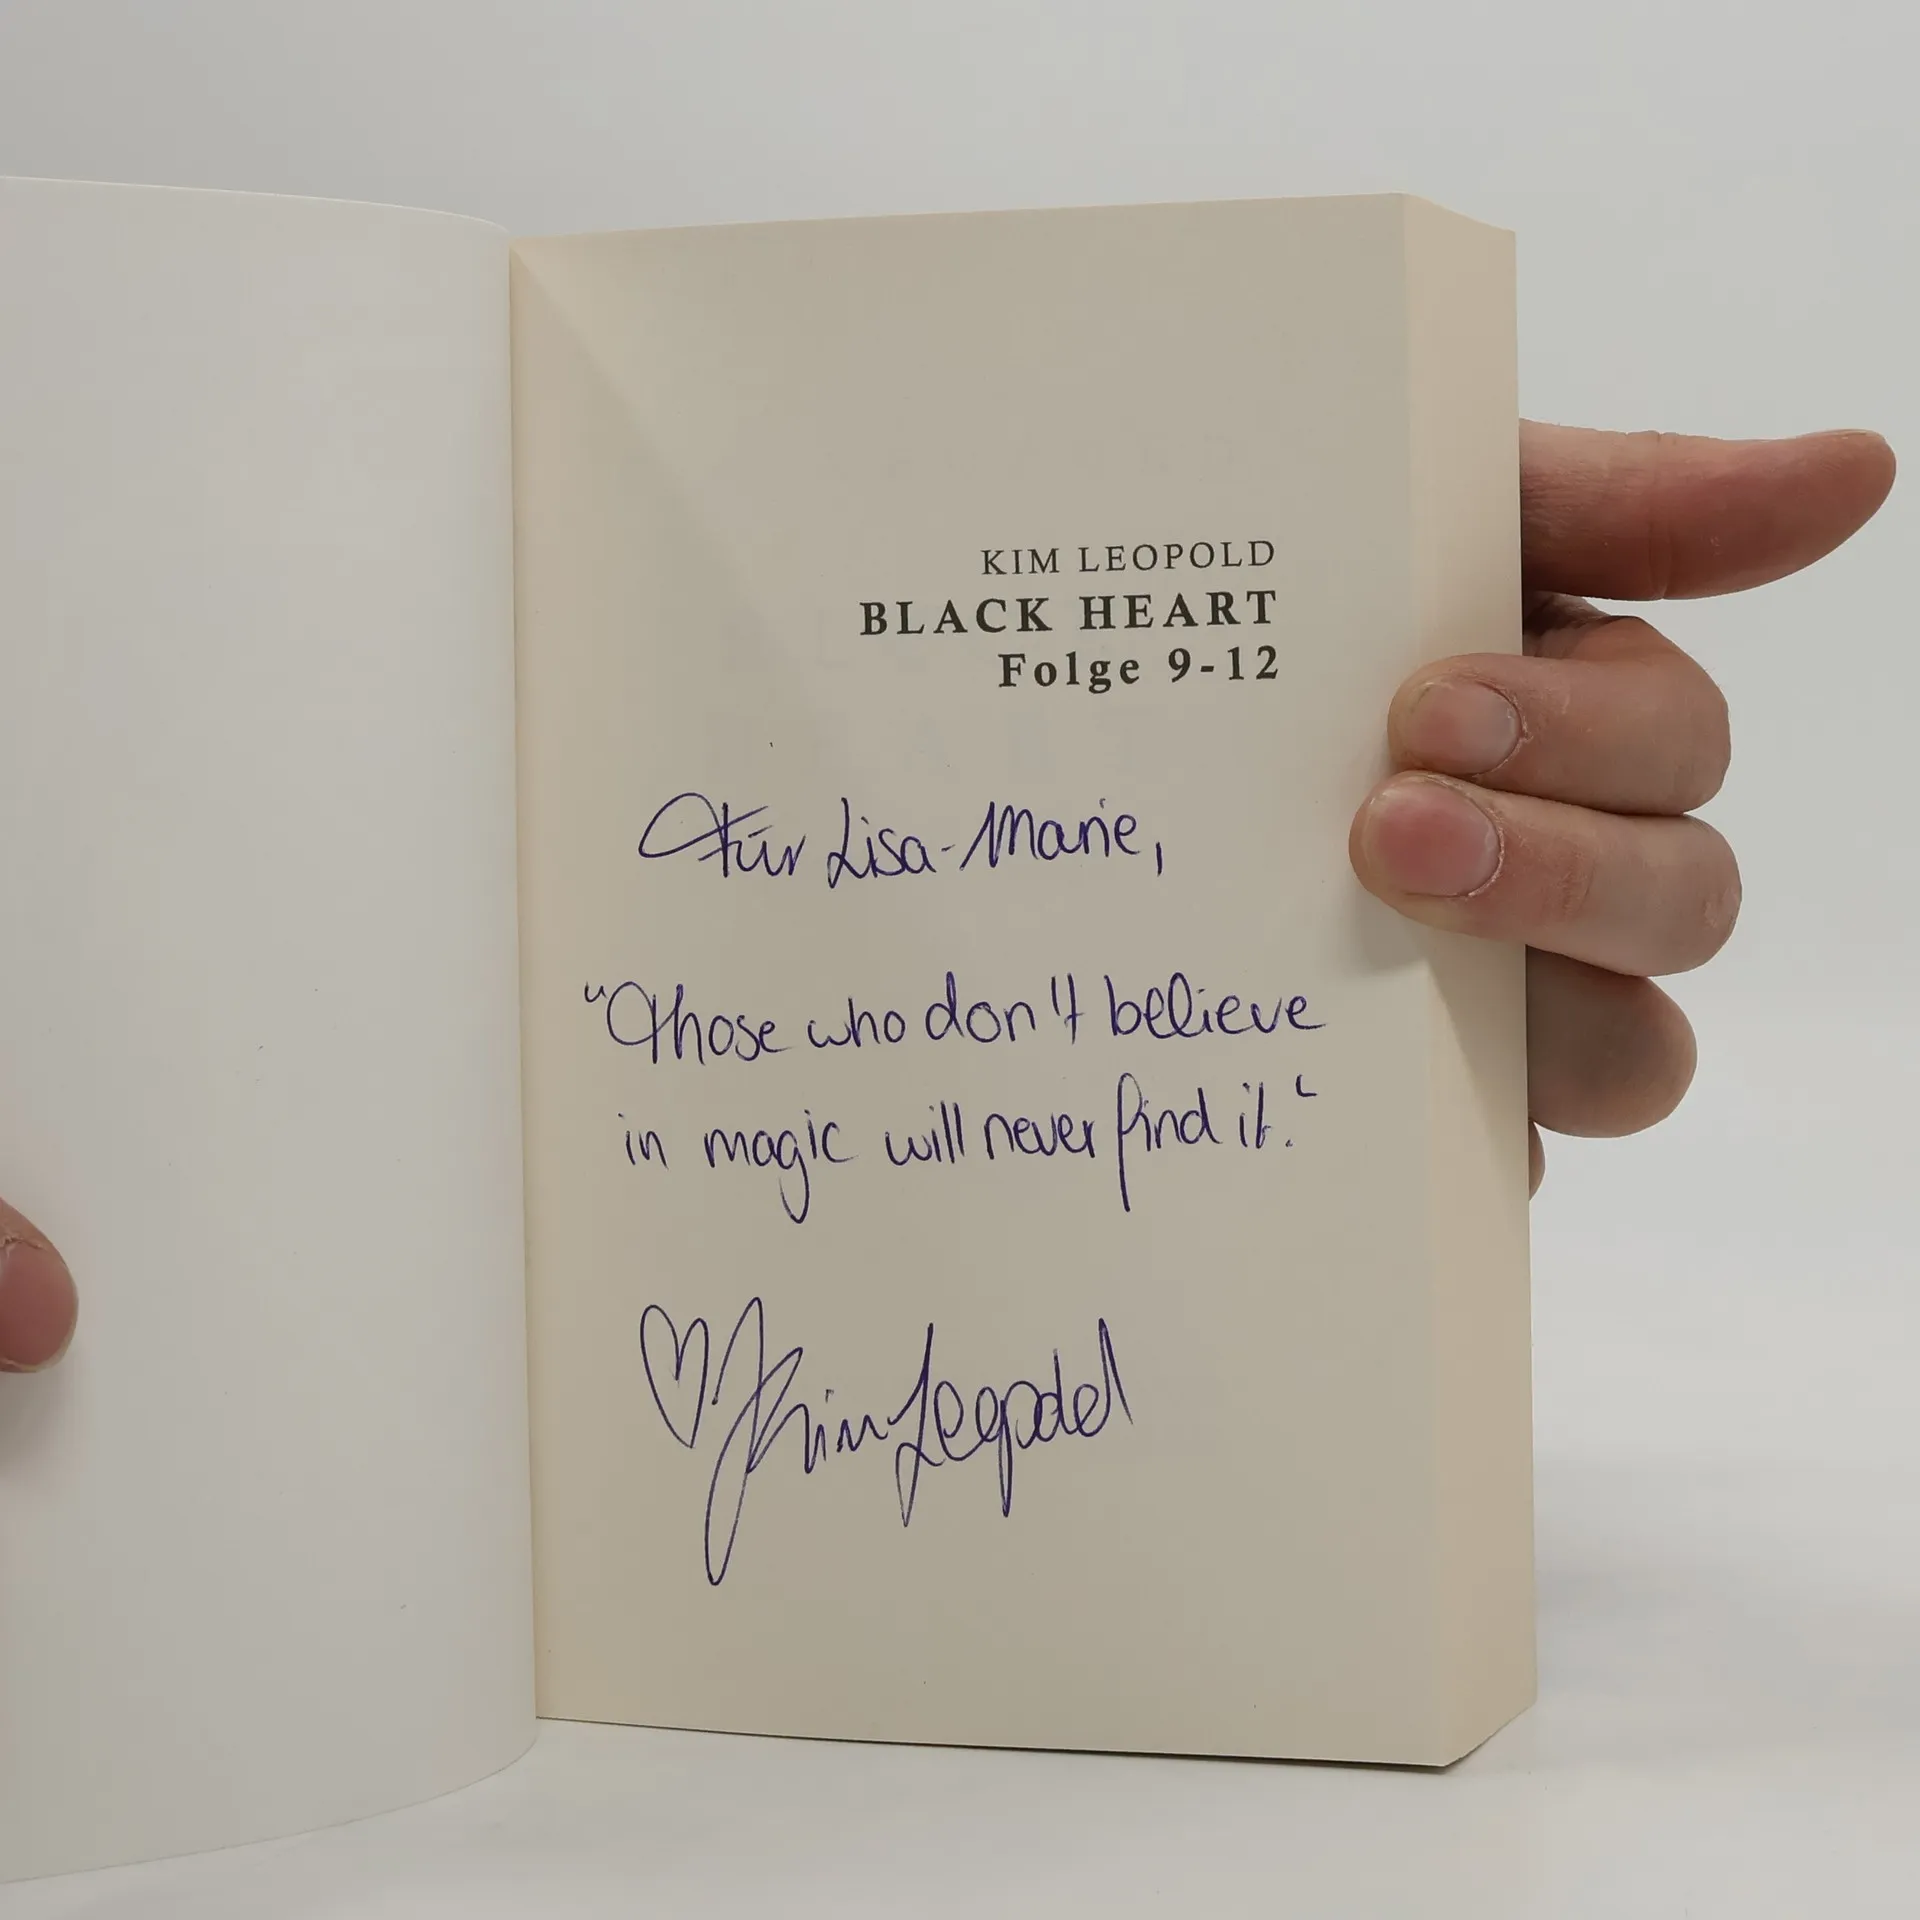 KIM LEOPOLD
BLACK HEART
Folge 9-12
Für Lisa-Marie,
"Those who don't believe
in magic will never find it."
Kim Leopold